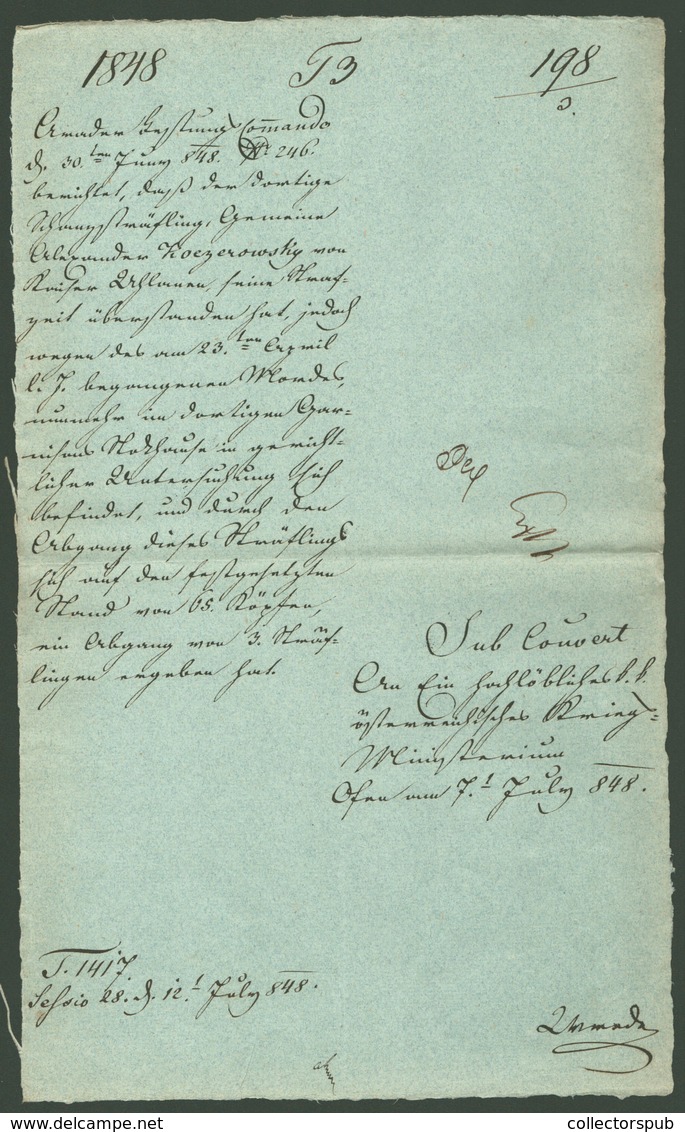 1848 T3 198
3.
Arader Festungs Commando
d. 30.ten Juny 848. No 246.
berichtet, daß der dortige
Schanzsträfling, Gemeine
Alexander Koczerowsky von
Kaiser Uhlanen, seine Straf=
zeit überstanden hat, jedoch
wegen des am 23.ten April
l. J. begangenen Mordes,
nunmehr im dortigen Gar=
nisons Stokhause in gericht=
licher Untersuchung sich
befindet, und durch den
Abgang dieses Sträflings
sich auf den festgesetzten
Stand von 65. Köpfen,
ein Abgang von 3. Sträf=
lingen ergeben hat.
Sub Couvert
An Ein hochlöbliches k. k.
österreichisches Kriegs=
Ministerium
Ofen am 7.t July 848.
T. 1417.
Sessio 28. d. 12.t July 848.
collectorspub